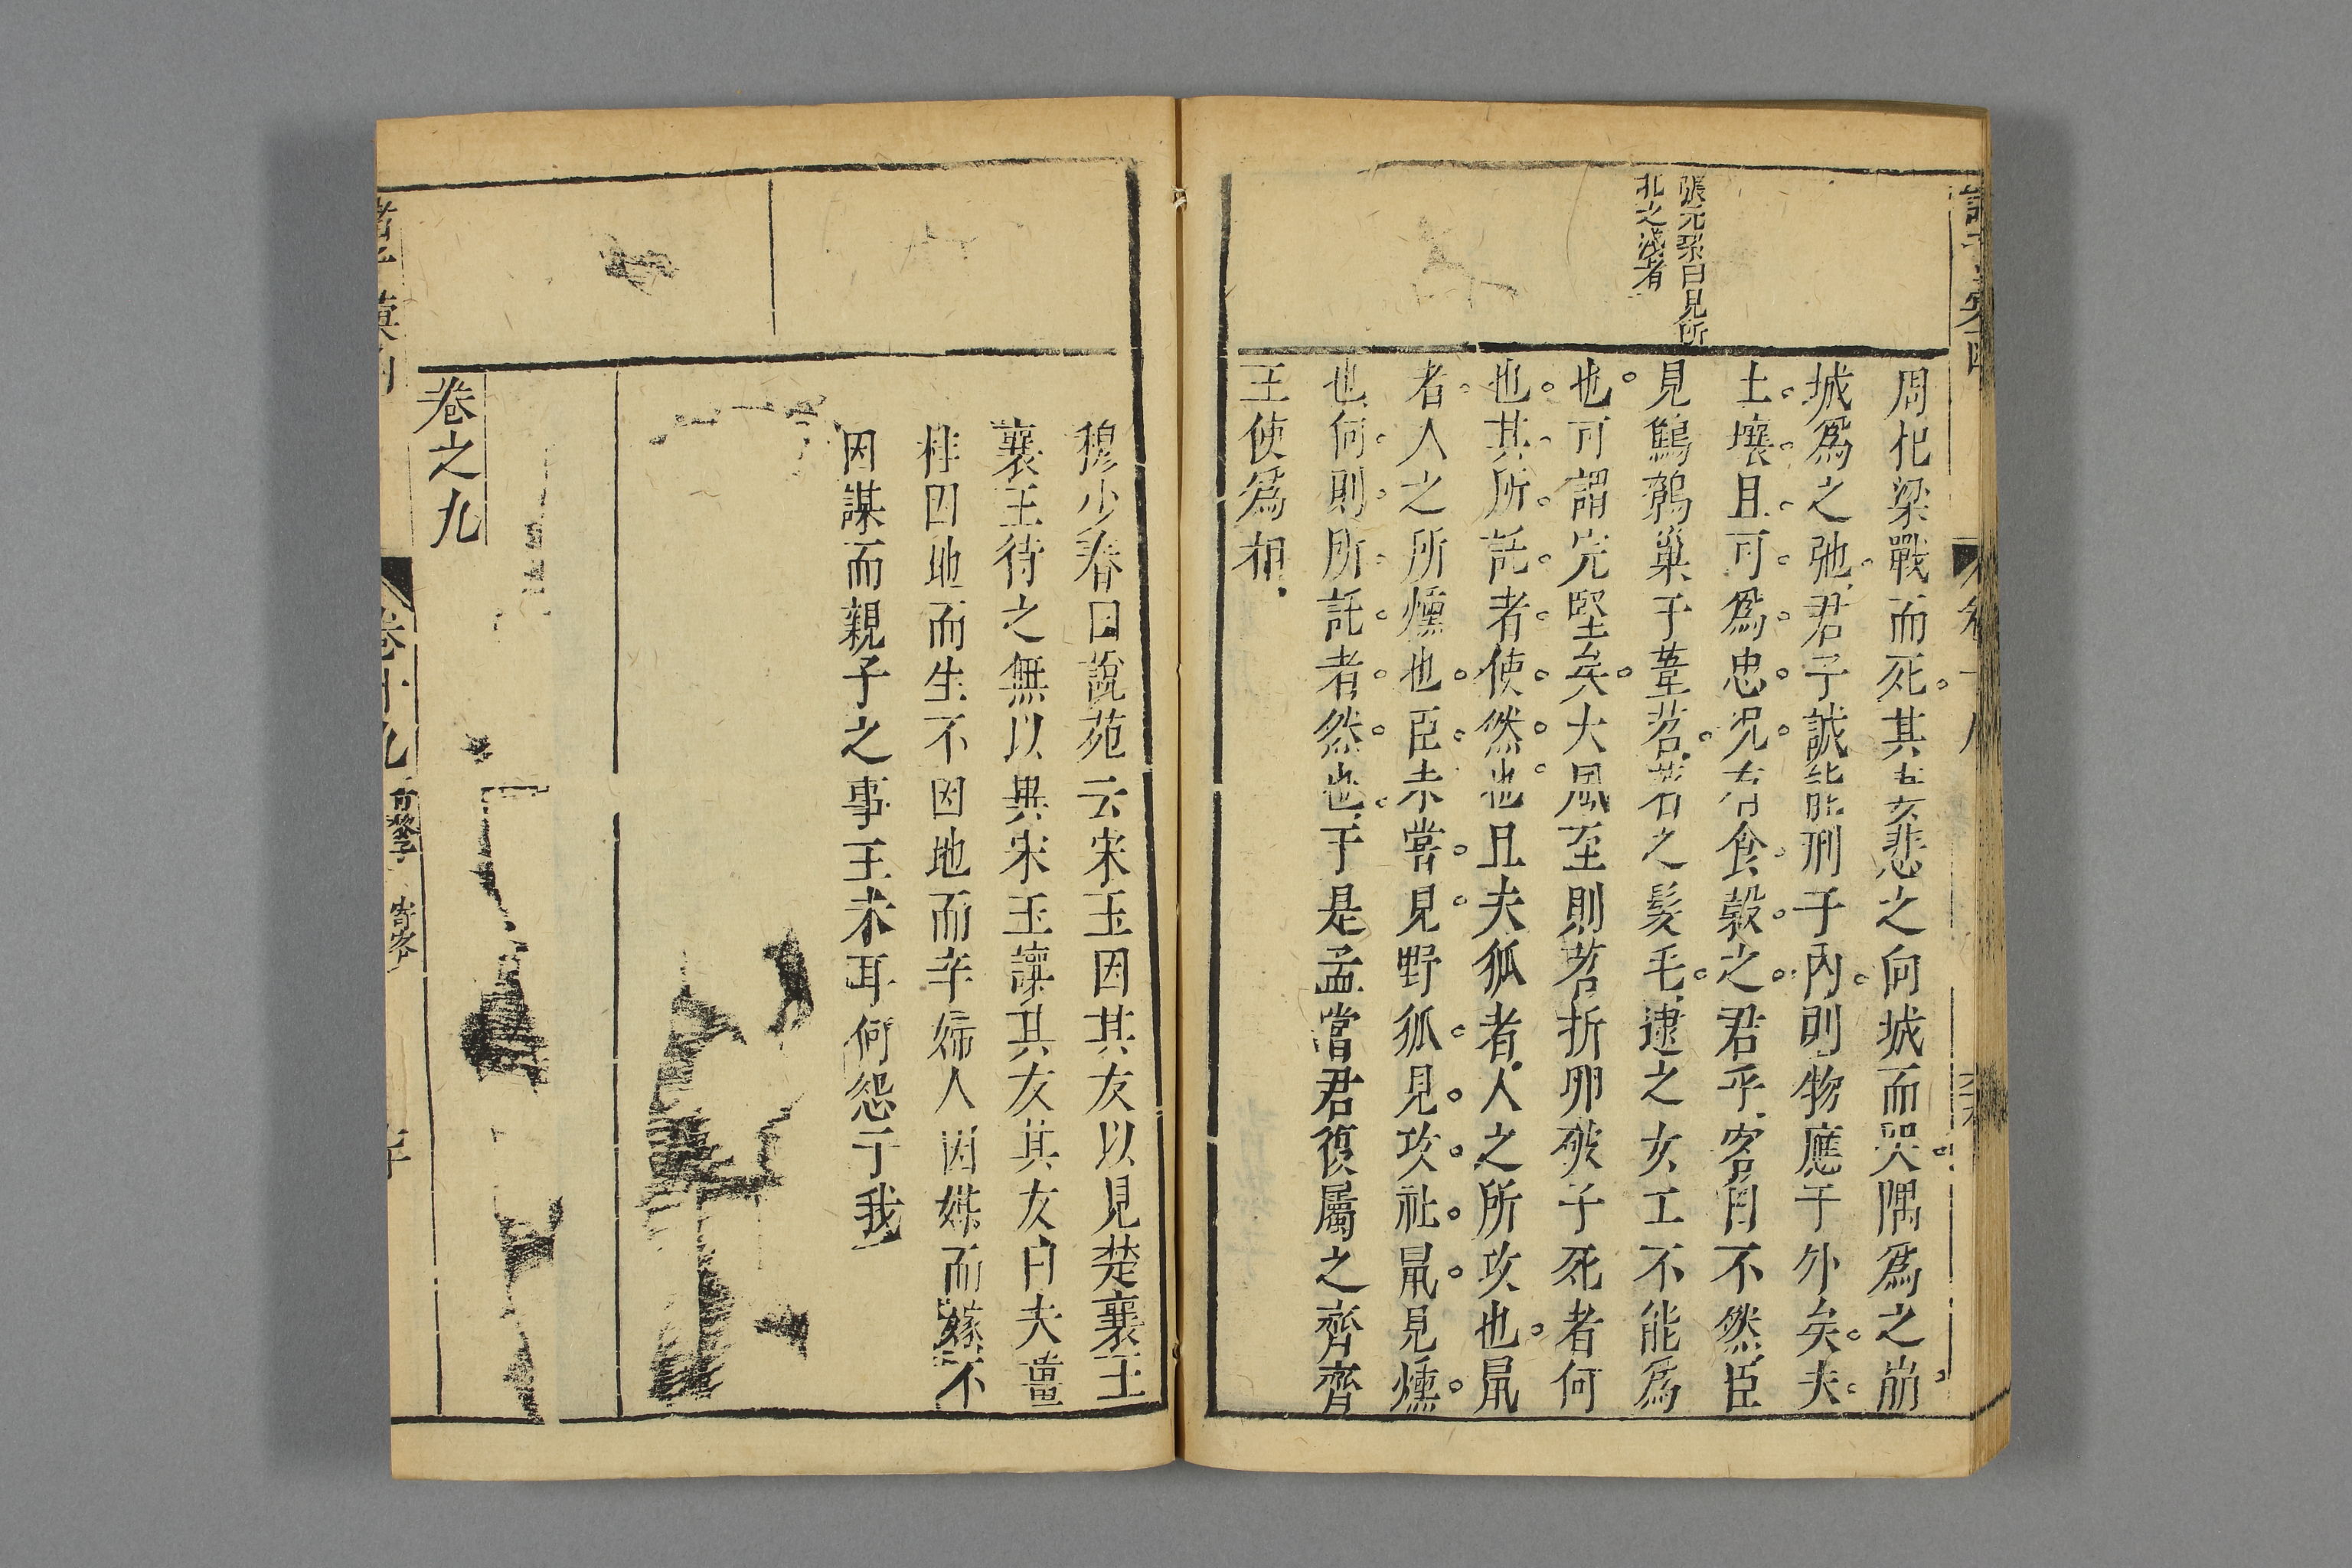 張元鄒曰見所
北之淺者
周杞梁戰而死其妻悲之向城而哭隅爲之崩
城爲之弛君子誠能刑于內則物應于外矣夫
土壤且可爲忠況有食穀之君乎客曰不然臣
見鷦鷯巢于葦苕著之髮毛建之女工不能爲
也可謂完堅矣大風至則苕折卵破子死者何
也其所託者使然也且夫狐者人之所攻也鼠
者人之所燻也臣未嘗見野狐見攻社鼠見燻
也何則所託者然也于是孟嘗君復屬之齊齊
王使爲相
穆少春曰說苑云宋玉因其友以見楚襄王
襄王待之無以異宋玉讓其友其友曰夫薑
桂因地而生不因地而辛婦人因媒而嫁不
因媒而親子之事王未耳何怨于我
卷之九
卷十九